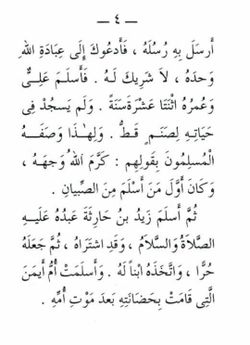 — ٤ —
أَرسَلَ بِهِ رُسُلَهُ ، فَأَدعُوكَ إِلَى عِبَادَةِ اللهِ
وَحدَهُ ، لاَ شَرِيكَ لَـهُ . فَأَسلَمَ عَلِـيٌّ
وَعُمرُهُ اثْنَتَا عَشْرَةَ سَنَةً . وَلَم يَسجُدْ فِى
حَيَاتِـهِ لِصَنَـمٍ قَـطُّ . وَلِهـٰذَا وَصَفَـهُ
الْمُسلِمُونَ بِقَولِهِم : كَرَّمَ اللهُ وَجهَهُ ،
وَكَانَ أَوَّلَ مَن أَسْلَمَ مِنَ الصِّبيَانِ .
ثُمَّ أَسلَمَ زَيدُ بنُ حَارِثَةَ عَبدُهُ عَلَيـهِ
الصَّلاَةُ وَالسَّلاَمُ ، وَقَدِ اشتَرَاهُ ، ثُمَّ جَعَلَهُ
حُرًّا ، وَاتَّخَذَهُ ابناً لَهُ . وَأَسلَمَتْ أُمُّ أَيمَنَ
الَّتِى قَامَتْ بِحَضَانَتِهِ بَعدَ مَوْتِ أُمِّهِ .